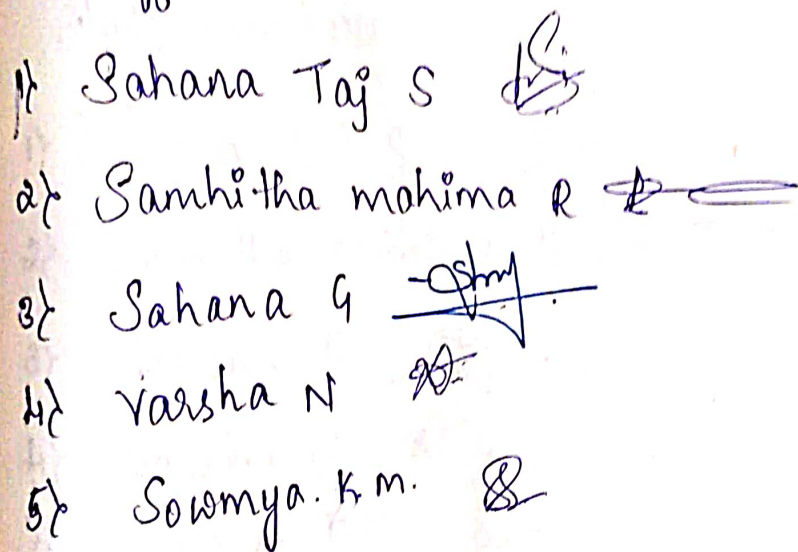 1} Sahana Taj S
2} Samhitha mahima R
3} Sahana G
4} Varsha N
5} Sowmya. K. M.